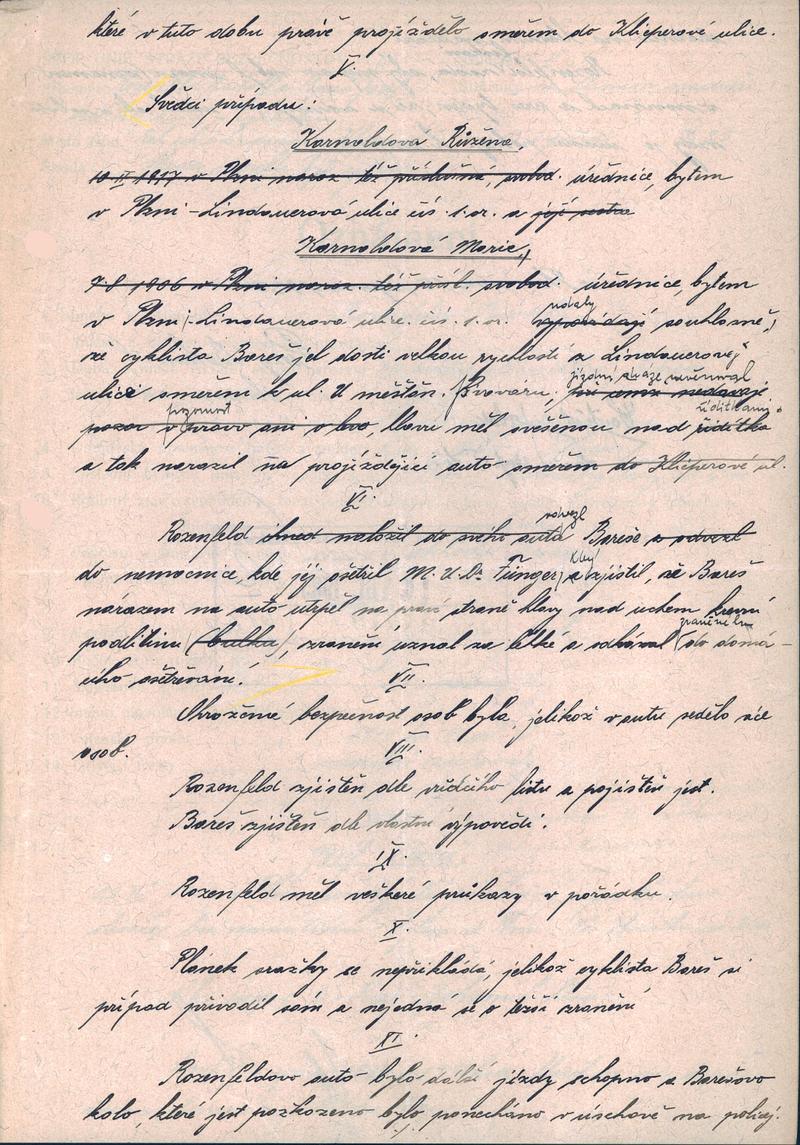 které v tuto dobu právě projíždělo směrem do Klicperové ulice.
V.
Svědci případu:
Kornoldova Růžena,
10 II 1917 v Plzni naroz. též příslušná, svobd. úřednice, bytem
v Plzni-Lindauerová ulice čís. 1. or. a její sestra
Kornoldová Marie,
7.8 1906 v Plzni naroz. též přísl. svobod. úřednice, bytem
v Plzni-Lindauerová ulice. čís. 1. or. vypovídají udaly souhlasně,
že cyklista Bareš jel dosti velkou rychlostí z Lindauerové
ulice směrem k ul. U měšťan. Pivovaru, jízdní dráze nevěnoval
pozor v pravo ani v levo, pozornost hlavu měl svěšenou nad řídítka řidítkami
a tak narazil na projíždějící auto směrem do Klicperové ul.
VI.
Rozenfeld ihned naložil do svého auta odvezl Bareše a odvezl
do nemocnice, kde jej ošetřil M. U. Dr. Fünger, který zjistil, že Bareš
nárazem na auto utrpěl na pravé straně hlavy nad uchem krevní
podlitinu (bulku), zranění uznal za lehké a odkázal do domá-
cího ošetřování.
VII.
Ohrožená bezpečnost osob byla, jelikož v autu sedělo více
osob.
VIII.
Rozenfeld zjištěn dle vůdčího listu a pojištěn jest.
Bareš zjištěn dle vlastní výpovědi.
IX.
Rozenfeld měl veškeré průkazy v pořádku.
X.
Plánek srážky se nepřikládá, jelikož cyklista Bareš si
případ přivodil sám a nejedná se o těžší zranění
XI.
Rozenfeldovo auto bylo další jízdy schopno a Barešovo
kolo, které jest poškozeno bylo ponecháno v úschově na policej.